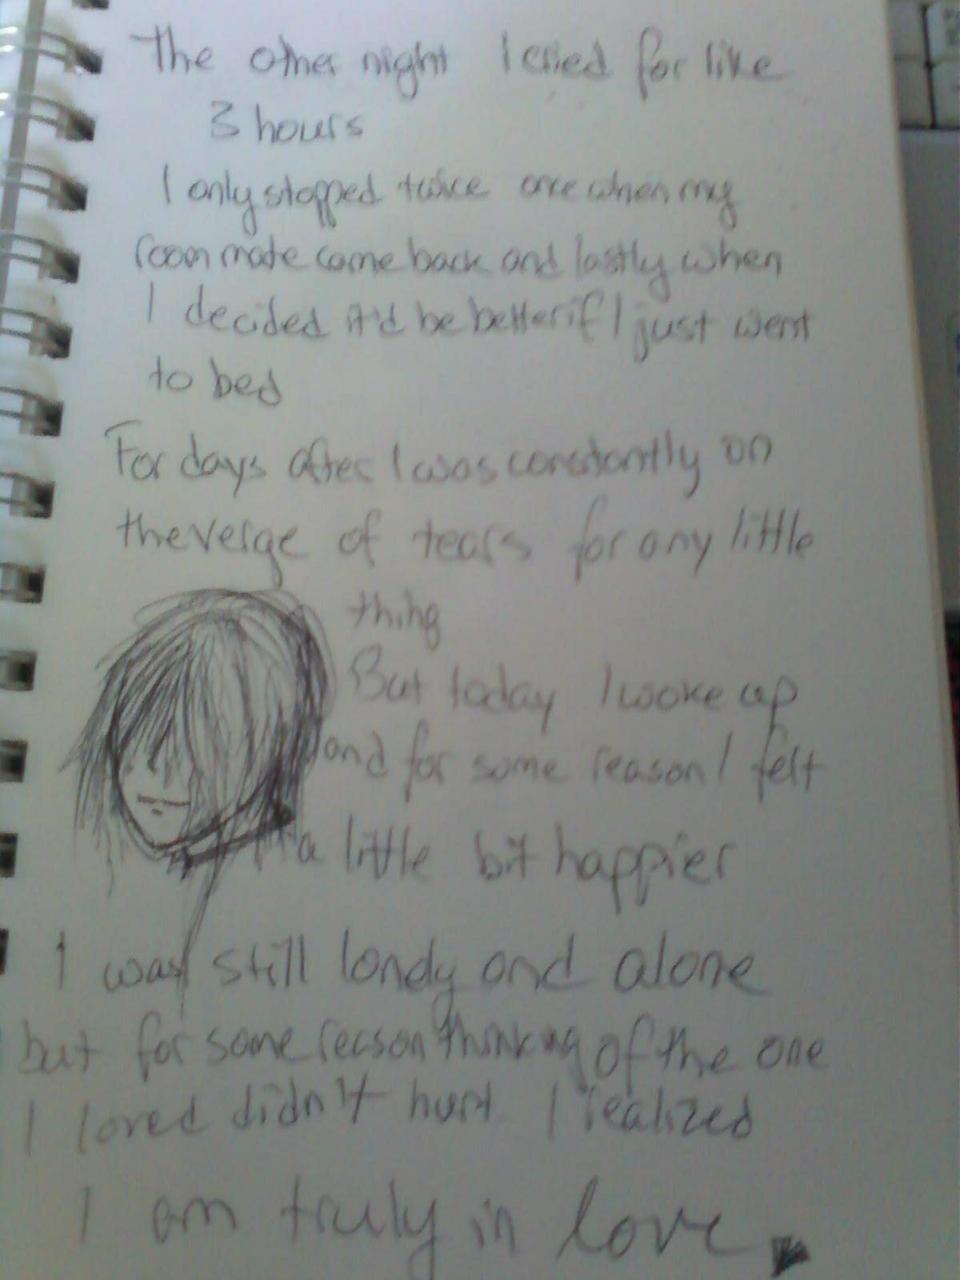 The other night I cried for like
3 hours
I only stopped twice once when my
room mate came back and lastly when
I decided it'd be better if I just went
to bed
For days after I was constantly on
the verge of tears for any little
thing
But today I woke up
and for some reason I felt
a little bit happier
I was still lonely and alone
but for some reason thinking of the one
I loved didn't hurt. I realized
I am truly in love.